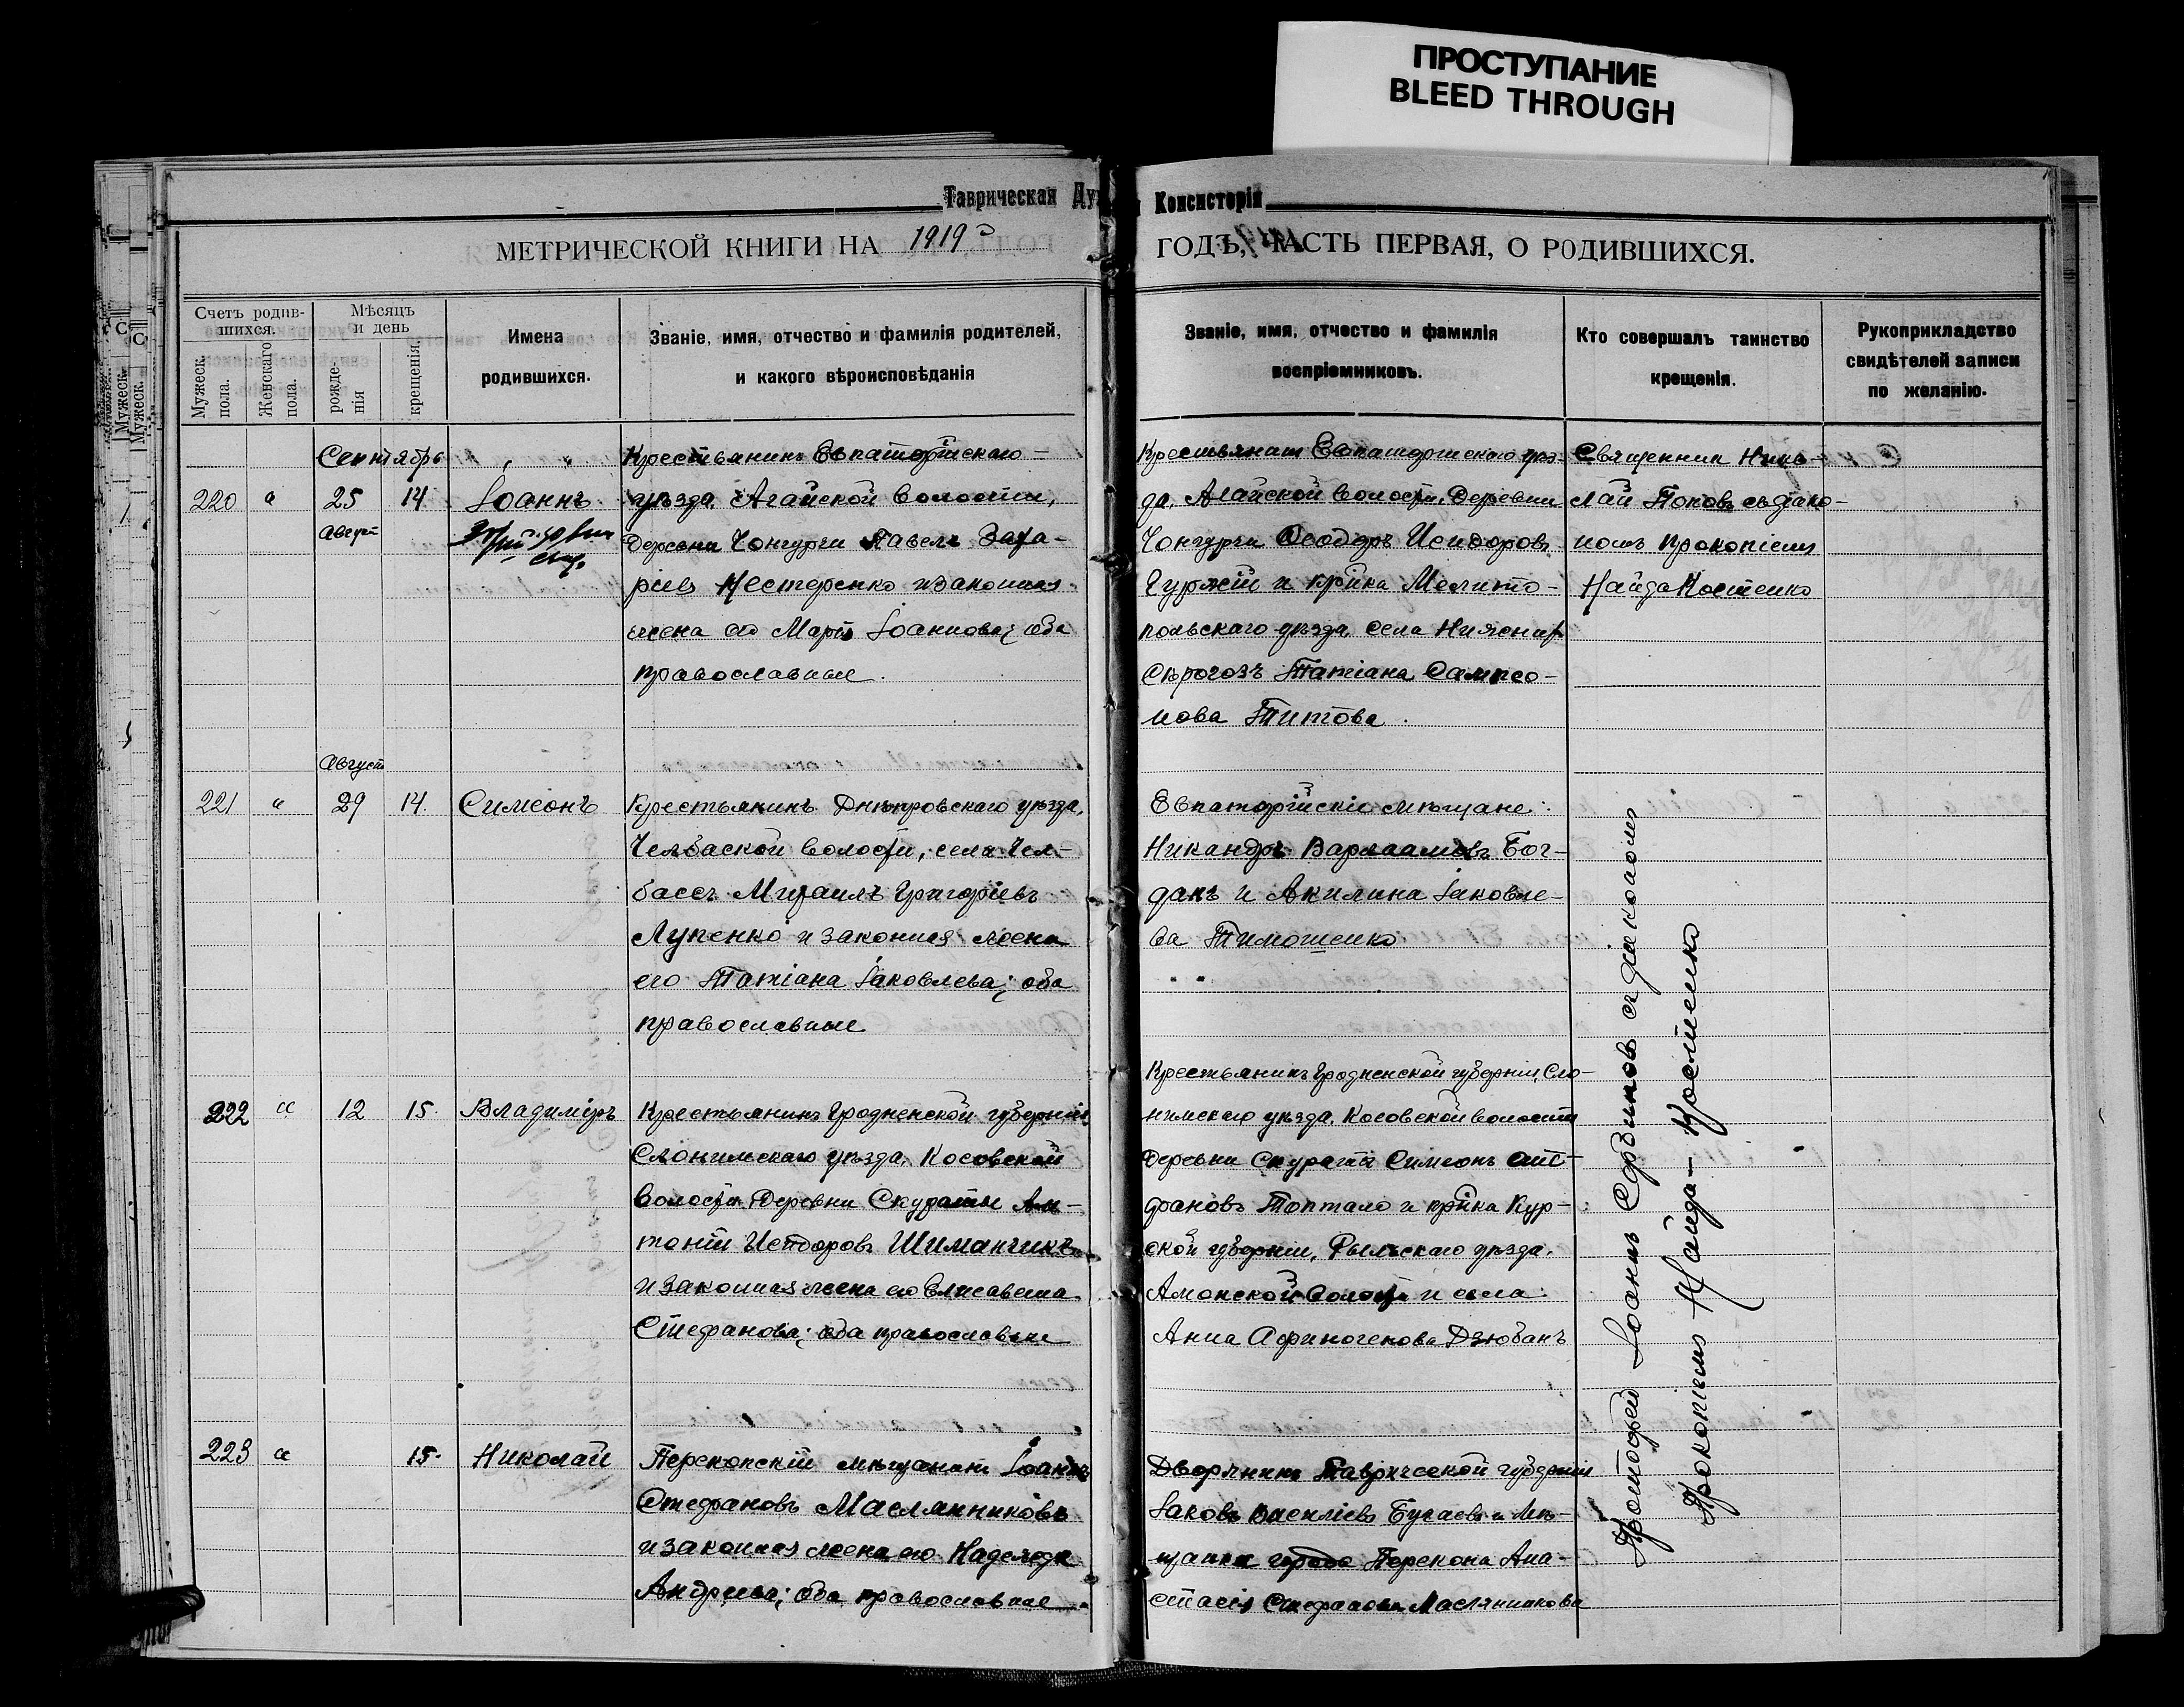 ПРОСТУПАНИЕ
BLEED THROUGH
Таврическая Дух
й Консисторіи
МЕТРИЧЕСКОЙ КНИГИ НА 1919
ГОДЪ, ЧАСТЬ ПЕРВАЯ, О РОДИВШИХСЯ.
Счетъ родившихся.
Мужеск. пола.
Женскаго пола.
Мѣсяцъ и день
рожденія
крещенія.
Имена
родившихся.
Званіе, имя, отчество и фамилія родителей,
и какого вѣроисповѣданія
Званіе, имя, отчество и фамилія
воспріемниковъ.
Кто совершалъ таинство
крещенія.
Рукоприкладство
свидѣтелей записи
по желанію.
Сентябрь
220 " 25 14 Іоаннъ
Август
Крестьянинъ Евпаторійскаго
уѣзда, Агайской волости,
деревни Чонгурчи Павелъ Заха-
ріевъ Нестеренко и законная
жена его Марія Іоаннова; оба
православные.
Крестьянинъ Евпаторійскаго уѣз-
да, Агайской волости, деревни
Чонгурчи Ѳеодоръ Исидоровъ
Гуржій и кр-нка Мелито-
польскаго уѣзда, села Нижнихъ
Сѣрогозъ Татіана Сампсо-
нова Титова.
Священник Нико-
лай Поповъ съ діако-
номъ Прокопіемъ
Найда Костенко
Август
221 " 29 14. Симеонъ
Крестьянинъ Днѣпровскаго уѣзда,
Челбаской волости, села Чел-
басъ Михаилъ Григоріевъ
Лупенко и законная жена
его Татіана Іаковлева; оба
православные
Евпаторійскіе мѣщане:
Никандръ Варлаамовъ Бог-
данъ и Акилина Іаковле-
ва Тимошенко
222 " 12 15. Владиміръ
Крестьянинъ Гродненской губерніи,
Слонимскаго уѣзда, Косовской
волости, деревни Скураты Ан-
тоній Исидоровъ Шиманчикъ
и законная жена его Елисавета
Стефанова; оба православные
Крестьянинъ Гродненской губерніи, Сло-
нимскаго уѣзда, Косовской волости
деревни Скураты Симеонъ Сте-
фановъ Топтало и кр-нка Кур-
ской губерніи, Рыльскаго уѣзда,
Амонской волости и села
Анна Афиногенова Дзюбанъ
223 " 15. Николай
Перекопскій мѣщанинъ Іоаннъ
Стефановъ Маслянниковъ
и законная жена его Надежда
Андреева; оба православные.
Дворянинъ Таврической губерніи
Іаковъ Василіевъ Бугаевъ и мѣ-
щанка города Перекопа Ана-
стасія Стефанова Маслянникова
Протоіерей Іоаннъ Сербиновъ съ діакономъ
Прокопіемъ Найда-Костенко